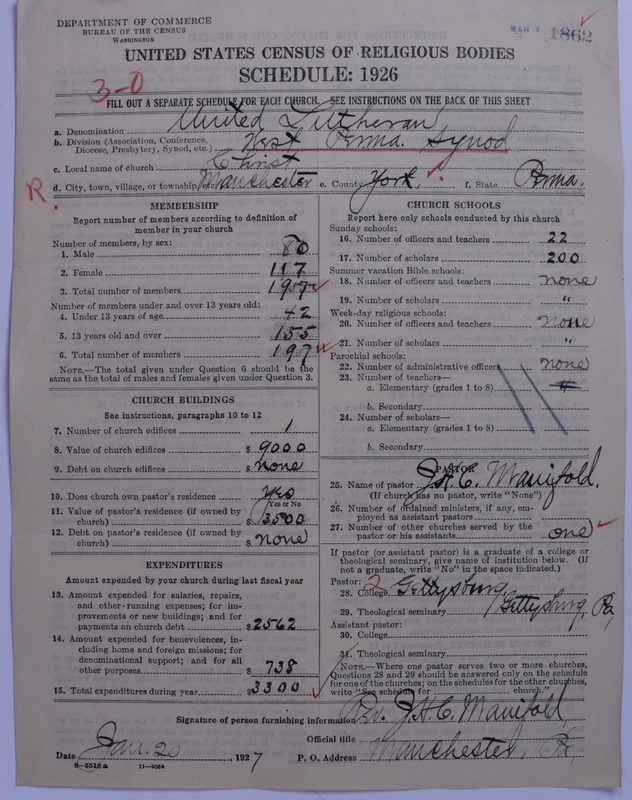 DEPARTMENT OF COMMERCE
BUREAU OF THE CENSUS
WASHINGTON
MAR 3
1862
UNITED STATES CENSUS OF RELIGIOUS BODIES
SCHEDULE: 1926
3-0
FILL OUT A SEPARATE SCHEDULE FOR EACH CHURCH. SEE INSTRUCTIONS ON THE BACK OF THIS SHEET
a. Denomination United Lutheran
b. Division (Association, Conference, Diocese, Presbytery, Synod, etc.) West Penna. Synod
c. Local name of church Christ
R. d. City, town, village, or township, etc. Manchester e. County York, f. State Penna.
MEMBERSHIP
Report number of members according to definition of
member in your church
Number of members, by sex:
1. Male 80
2. Female 117
3. Total number of members 197
Number of members under and over 13 years old:
4. Under 13 years of age 42
5. 13 years old and over 155
6. Total number of members 197
NOTE.—The total given under Question 6 should be
same as the total of males and females given under Question 3.
CHURCH BUILDINGS
See instructions, paragraphs 10 to 12
7. Number of church edifices 1
8. Value of church edifices $ 9000
9. Debt on church edifices $ none
10. Does church own pastor's residence yes
Yes or No
11. Value of pastor's residence (if owned by
church) $ 3500
12. Debt on pastor's residence (if owned by
church) $ none
EXPENDITURES
Amount expended by your church during last fiscal year
13. Amount expended for salaries, repairs,
and other running expenses; for im-
provements or new buildings; and for
payments on church debt $ 2562
14. Amount expended for benevolences, in-
cluding home and foreign missions; for
denominational support; and for all
other purposes $ 738
15. Total expenditures during year $ 3300
CHURCH SCHOOLS
Report here only schools conducted by this church
Sunday schools:
16. Number of officers and teachers 22
17. Number of scholars 200
Summer vacation Bible schools:
18. Number of officers and teachers none
19. Number of scholars "
Week-day religious schools:
20. Number of officers and teachers none
21. Number of scholars "
Parochial schools:
22. Number of administrative officers none
23. Number of teachers—
a. Elementary (grades 1 to 8) "
b. Secondary
24. Number of scholars—
a. Elementary (grades 1 to 8)
b. Secondary
PASTOR
25. Name of pastor J.H.C. Manifold.
(If church has no pastor, write "None")
26. Number of ordained ministers, if any, em-
ployed as assistant pastors
27. Number of other churches served by the
pastor or his assistants one
If pastor (or assistant pastor) is a graduate of a college or
theological seminary, give name of institution below. (If
not a graduate, write "No" in the space indicated.)
Pastor: 2
28. College Gettysburg
29. Theological seminary Gettysburg, Pa,
Assistant pastor:
30. College
31. Theological seminary
NOTE.—Where one pastor serves two or more churches,
Questions 28 and 29 should be answered only on the schedule
for one of the churches; on the schedules for the other churches,
write "See schedule for church."
Signature of person furnishing information Rev. J.H.C. Manifold,
Official title
Date Jan. 20, 1927 P. O. Address Manchester, Pa,
8-5518a 11-9064